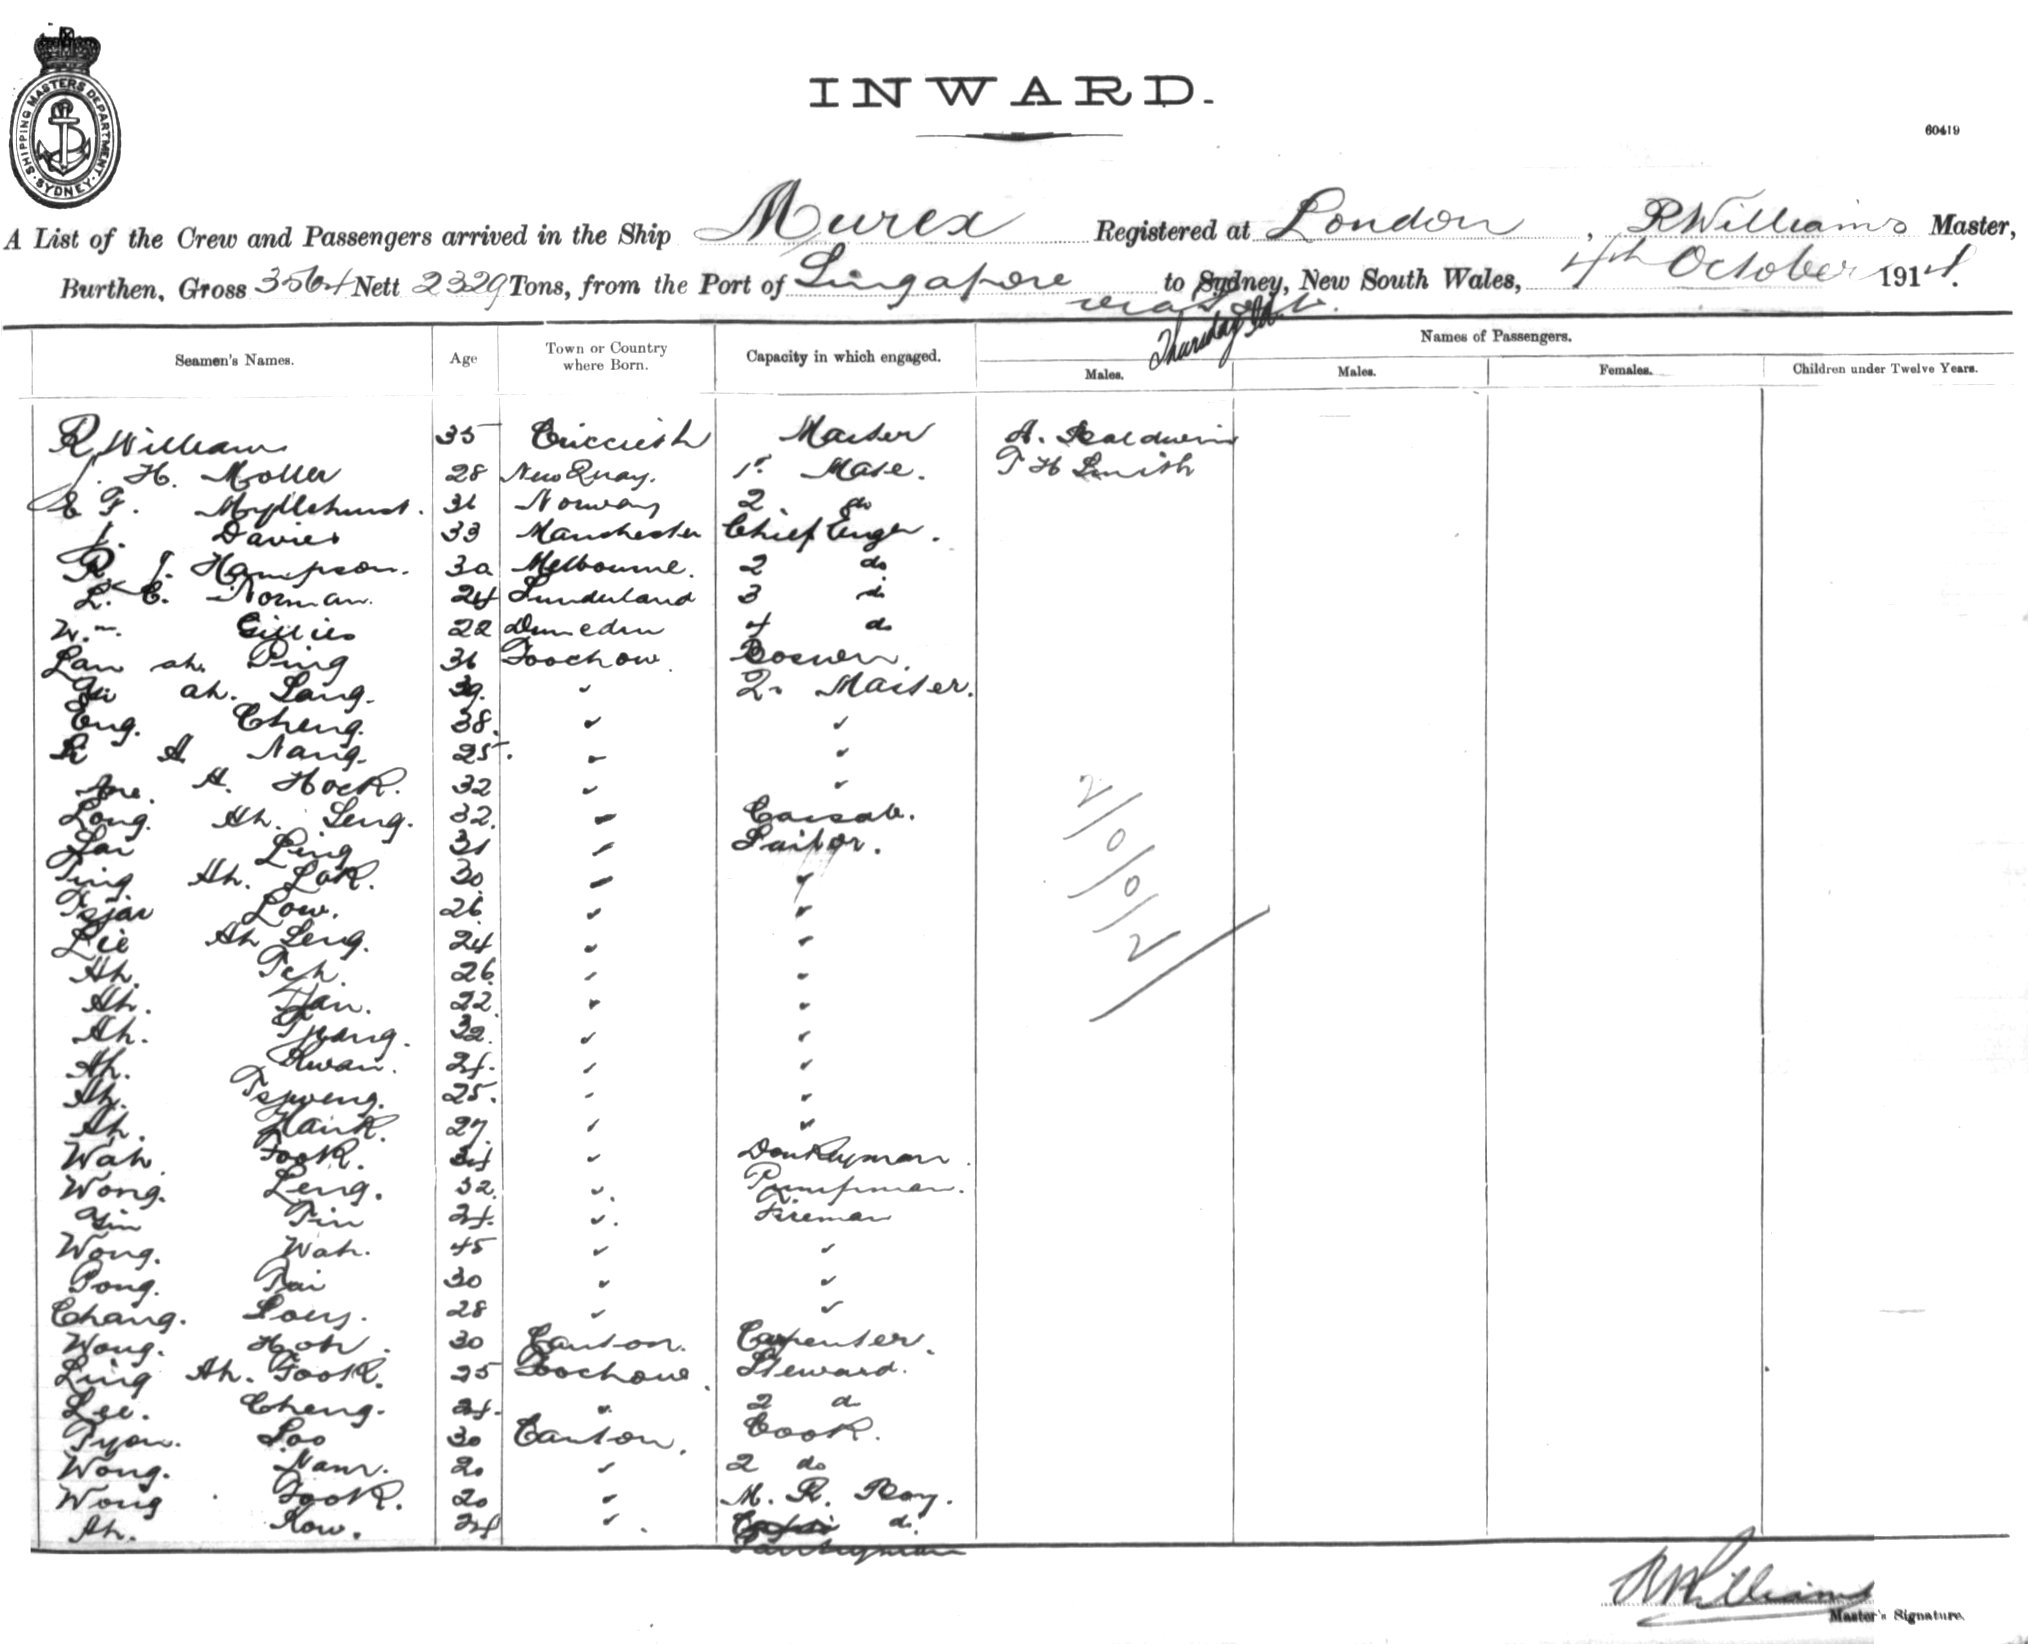 SHIPPING MASTERS DEPARTMENT
SYDNEY
INWARD.
60419
A List of the Crew and Passengers arrived in the Ship Murex Registered at London, R Williams Master,
Burthen, Gross 3564 Nett 2329 Tons, from the Port of Singapore to Sydney, New South Wales, 4th October 1914.
via
Thursday Isld
Seamen's Names. Age Town or Country where Born. Capacity in which engaged. Names of Passengers.
Males. Males. Females. Children under Twelve Years.
R Williams 35 Criccieth Master A. Baldwin
J. H. Moller 28 New Quay. 1st Mate. T H Smith
E F. 31 Norway 2 do
J. Davies 33 Manchester Chief Engr.
R. J. Hampson. 30 Melbourne. 2 do
L. E. Norman. 24 Sunderland 3 do
Wm. Gillies 22 Dunedin 4 do
Lan ah. Ping 36 Foochow. Bosun.
ah. Lang. 39. " 2r Master.
Eng. Cheng. 38. " "
A. Nang. 25. " "
A. Hock. 32 " "
Long. Ah. Seng. 32. " Cassab.
Lai Ling 31 " Sailor.
Ting Ah. Lok. 30 " "
Tsjai Low. 26 " "
Lie Ah Seng. 24 " "
Ah. Teh. 26 " "
Ah. 22 " "
Ah. 32. " "
Ah. Kwan. 24. " "
Ah. 25. " "
Ah. 27. " "
Wah Fook. 34 " Donkeyman.
Wong. Leng. 32. " Pumpman.
Yin Tin 24. " Fireman
Wong. Wah. 45 " "
Pong. Tai 30 " "
Chang. 28 " "
Wong. Hoh. 30 Canton. Carpenter.
Ling Ah. Fook. 25 Foochow. Steward.
Lee. Cheng. 24. " 2 do
Loo 30 Canton. Cook.
Wong. Nam. 20 " 2 do
Wong Fook. 20 " M. R. Boy.
Ah. Kow. 24 " do
Pantryman
2/0/0/2
R Williams
Master's Signature.